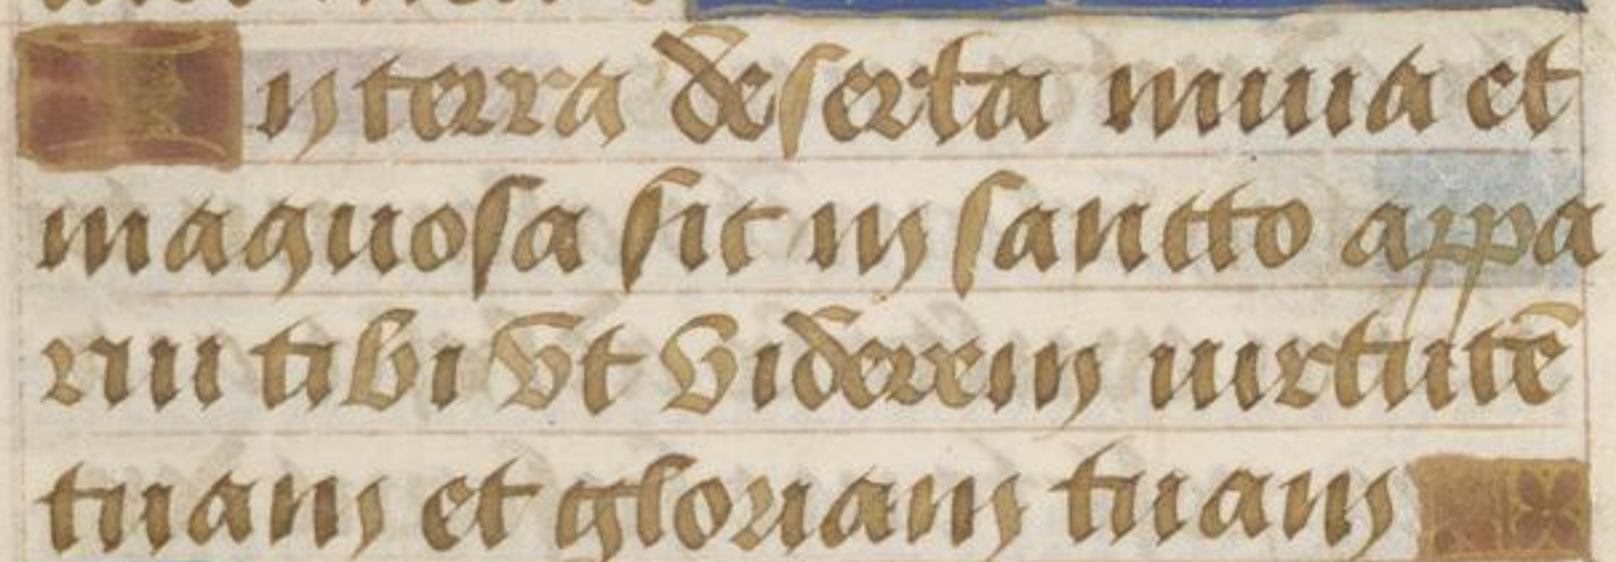 In terra deserta inuia et
inaquosa sic in sancto appa
rui tibi vt viderem uirtutē
tuam et gloriam tuam